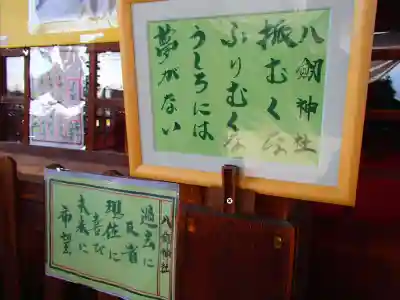 八剱神社
振むくな
ふりむくな
うしろには
夢がない
八剱神社
過去に
反省
現在に
喜び
未来に
希望